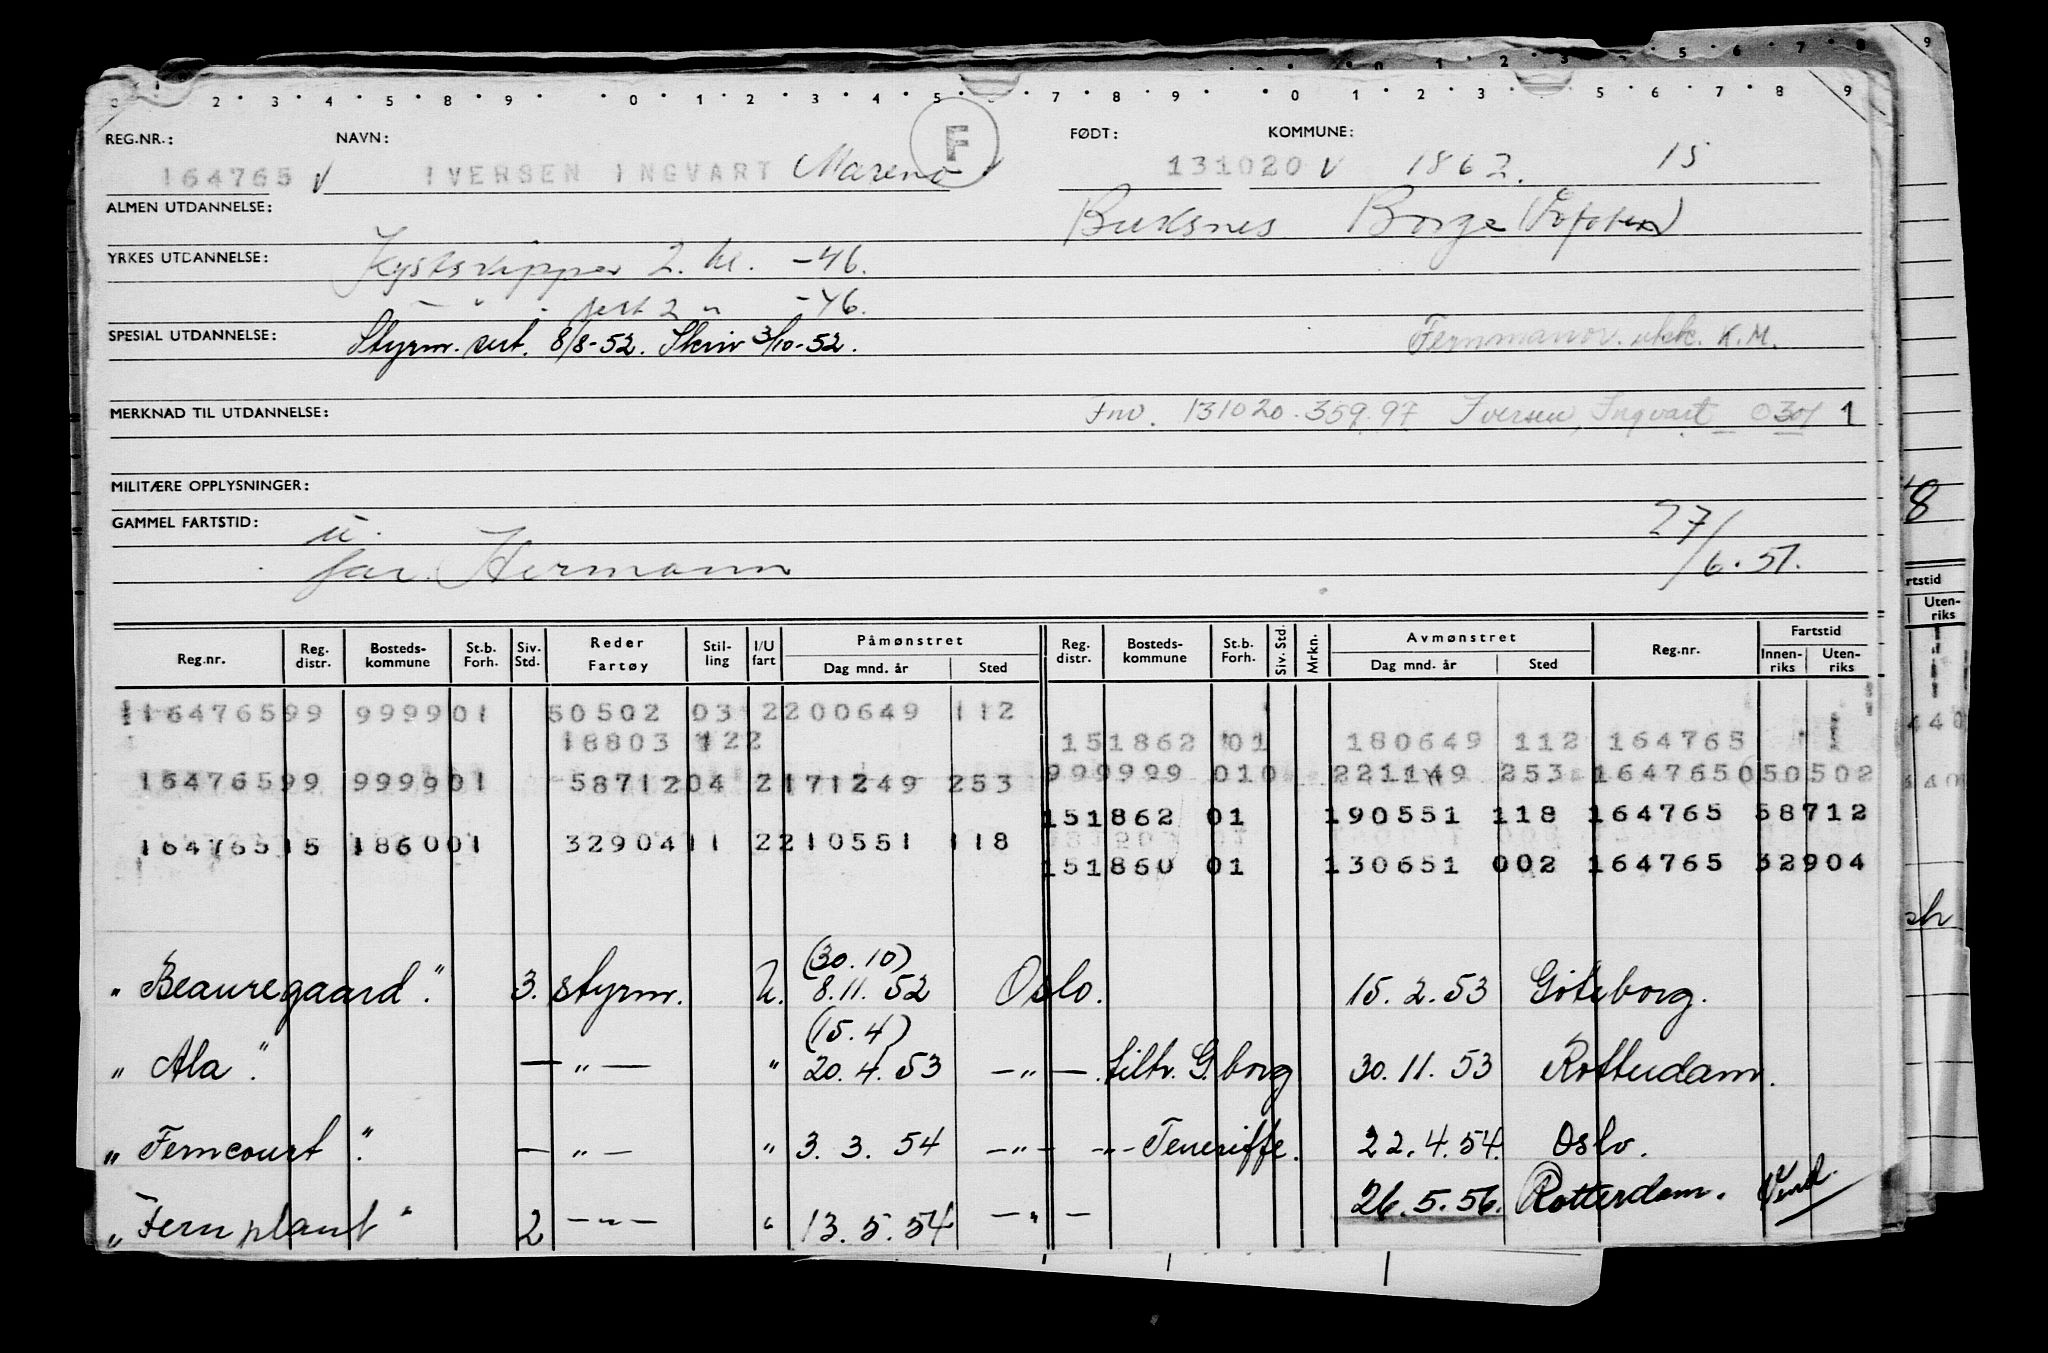 REG.NR.: NAVN: F FØDT: KOMMUNE:
164765 V IVERSEN INGVART Mareno 131020 V 1862. 15
ALMEN UTDANNELSE: Buksnes Borge (Lofoten)
YRKES UTDANNELSE: Kystskipper 2. kl. -46.
sert 2 " -46.
SPESIAL UTDANNELSE: Styrm. sert. 8/8-52. Skriv 3/10-52. Fernmanor. K.M.
MERKNAD TIL UTDANNELSE: Fnr. 131020.359.97 Iversen, Ingvart 0301 1
MILITÆRE OPPLYSNINGER:
GAMMEL FARTSTID: u. 27/6.51.
far. Hermann
Reg.nr. Reg. distr. Bosteds-kommune St.b. Forh. Siv. Std. Reder Fartøy Stil-ling I/U fart Påmønstret Dag mnd. år Sted Reg. distr. Bosteds-kommune St.b. Forh. Siv. Std. Mrkn. Avmønstret Dag mnd. år Sted Reg.nr. Fartstid Innen-riks Uten-riks
16476599 999901 50502 03 2200649 112
18803 122 151862 01 180649 112 164765
16476599 999901 5871204 2171249 253 999999 010 221149 253 164765050502
151862 01 190551 118 164765 58712
16476515 186001 32904 11 2210551 118
151860 01 130651 002 164765 32904
(30.10)
"Beauregaard". 3. styrm. U. 8.11.52 Oslo. 15.2.53 Göteborg.
(15.4)
"Ala". — " — " 20.4.53 — " —. tiltr. G.borg 30.11.53 Rotterdam.
"Ferncourt". — " — " 3.3.54 — " — — " — Teneriffe. 22.4.54. Oslo.
26.5.56. Rotterdam. Vend.
"Fernplant" 2 — " — " 13.5.54 — " —